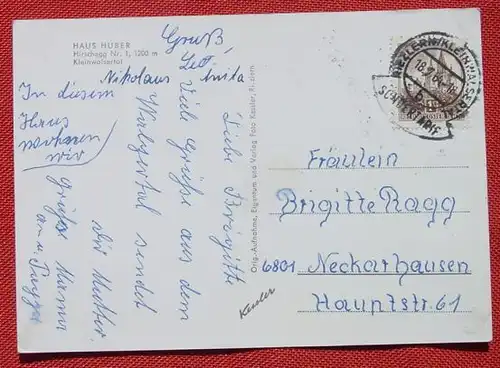 HAUS HUBER
Hirschegg Nr. 1, 1200 m
Kleinwalsertal
Gruß,
Nikolaus Anita
In diesem
Haus
wohnen
wir
Liebe Brigitte
Viele Grüße aus dem
Walzertal sendet
die Mutter.
Grüße Mama
Orig.-Aufnahme, Eigentum und Verlag Foto Kessler, Riezlern
Kessler
RIEZLERN/KLEINWALSERTAL
18.7.64
Fräulein
Brigitte Ragg
6801 Neckarhausen
Hauptstr. 61